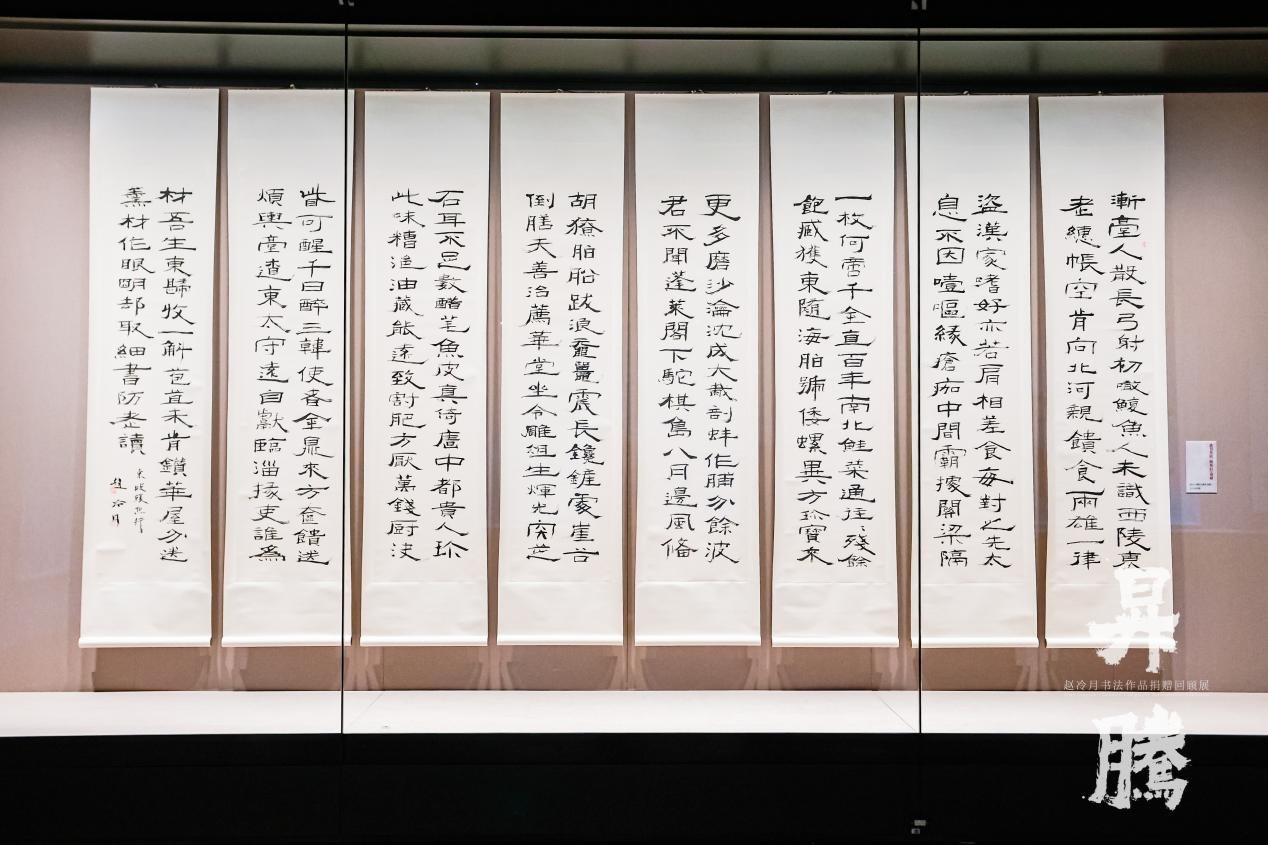 漸臺人散長弓射初噉鰒魚人未識西陵衰
老繐帳空肯向北河親饋食兩雄一律
盜漢家嗜好亦若肩相差食每對之先太
息不因噎嘔緣瘡痂中間霸據關梁隔
一枚何啻千金直百年南北鮭菜通往〻殘餘
飽臧獲東隨海舶號倭螺異方珍寶來
更多磨沙淪沈成大胾剖蚌作脯分餘波
君不聞蓬萊閣下駝棋島八月邊風備
胡獠舶船跋浪黿鼉震長鑱鏟處崖谷
倒膳夫善治薦華堂坐令雕俎生輝光肉芝
石耳不足數醋芼魚皮真倚廬中都貴人珍
此味糟浥油藏能遠致割肥方厭萬錢厨決
眥可醒千日醉三韓使者金鼎來方奩饋送
煩輿臺遼東太守遠自獻臨淄掾吏誰為
材吾生東歸收一斛苞苴未肯鑽華屋分送
羹材作眼明却取細書防老讀
東坡鰒魚行
趙冷月
昇騰
赵冷月书法作品捐赠回顾展